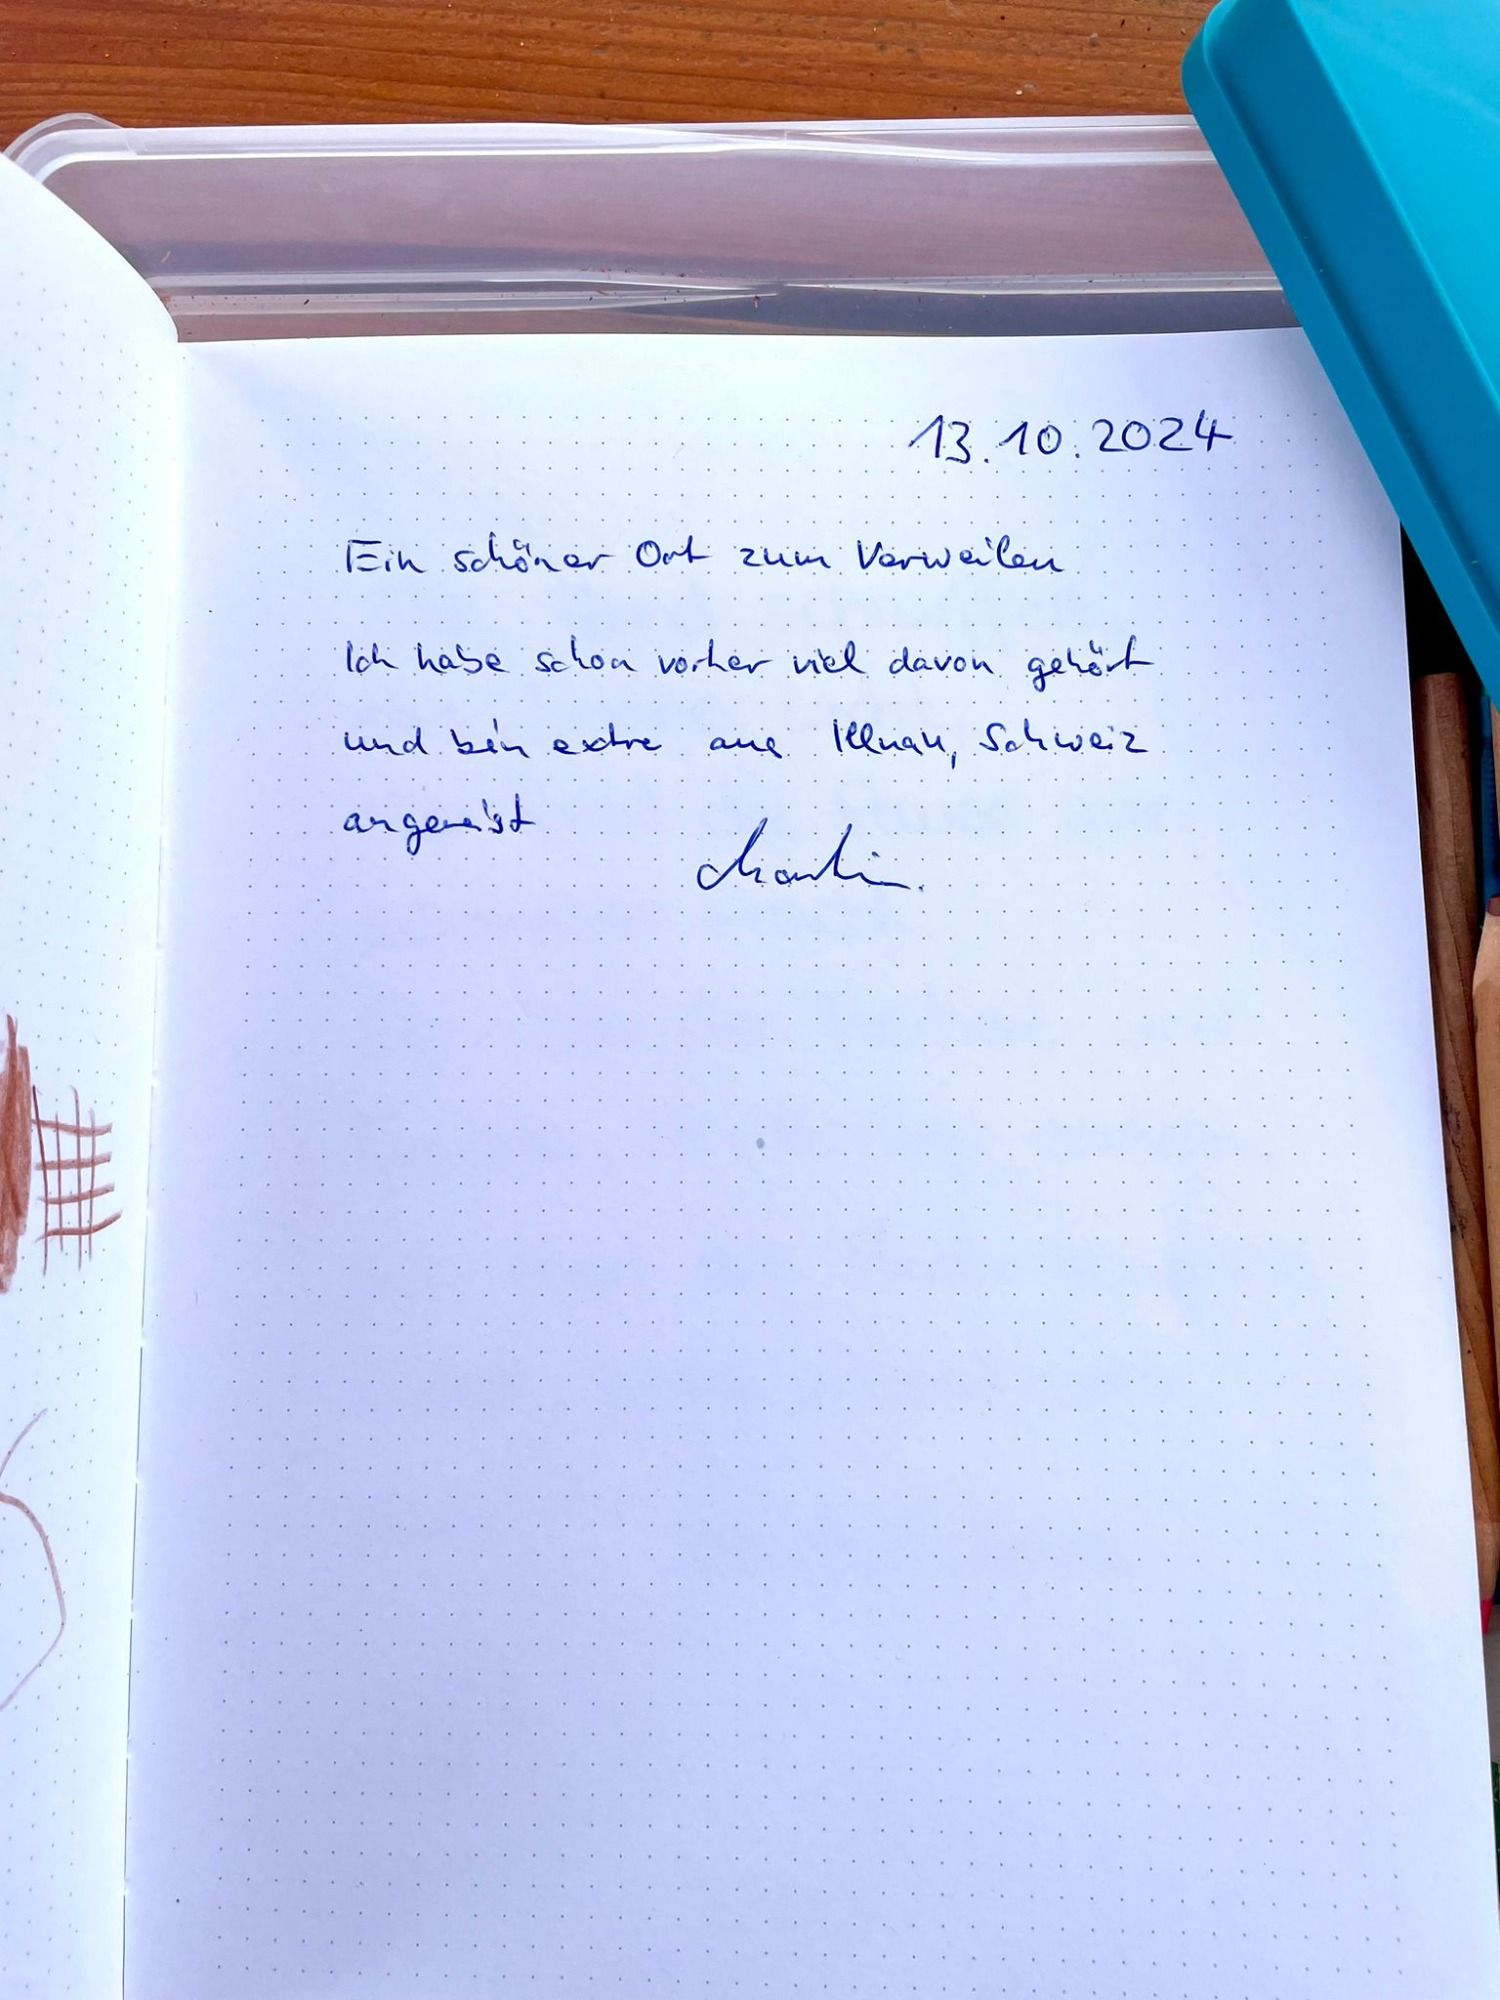 13.10.2024
Ein schöner Ort zum Verweilen
Ich habe schon vorher viel davon gehört
und bin extra aus Illnau, Schweiz
angereist
Martin